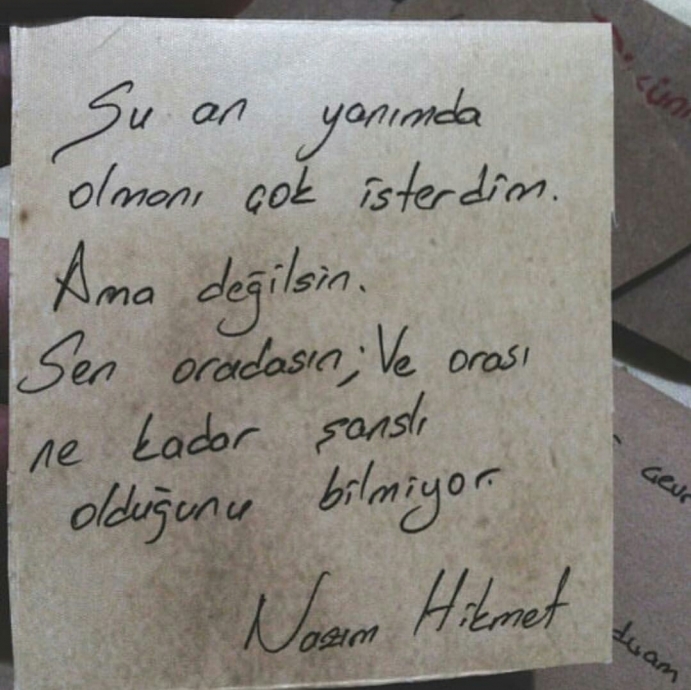 Şu an yanımda
olmanı çok isterdim.
Ama değilsin.
Sen oradasın; Ve orası
ne kadar şanslı
olduğunu bilmiyor.
Nazım Hikmet
duam